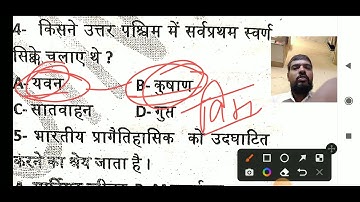 4- किसने उत्तर पश्चिम में सर्वप्रथम स्वर्ण
सिक्के चलाए थे ?
A- यवन B- कुषाण
C- सातवाहन D- गुप्त
विम
5- भारतीय प्रागैतिहासिक को उदघाटित
करने का श्रेय जाता है।